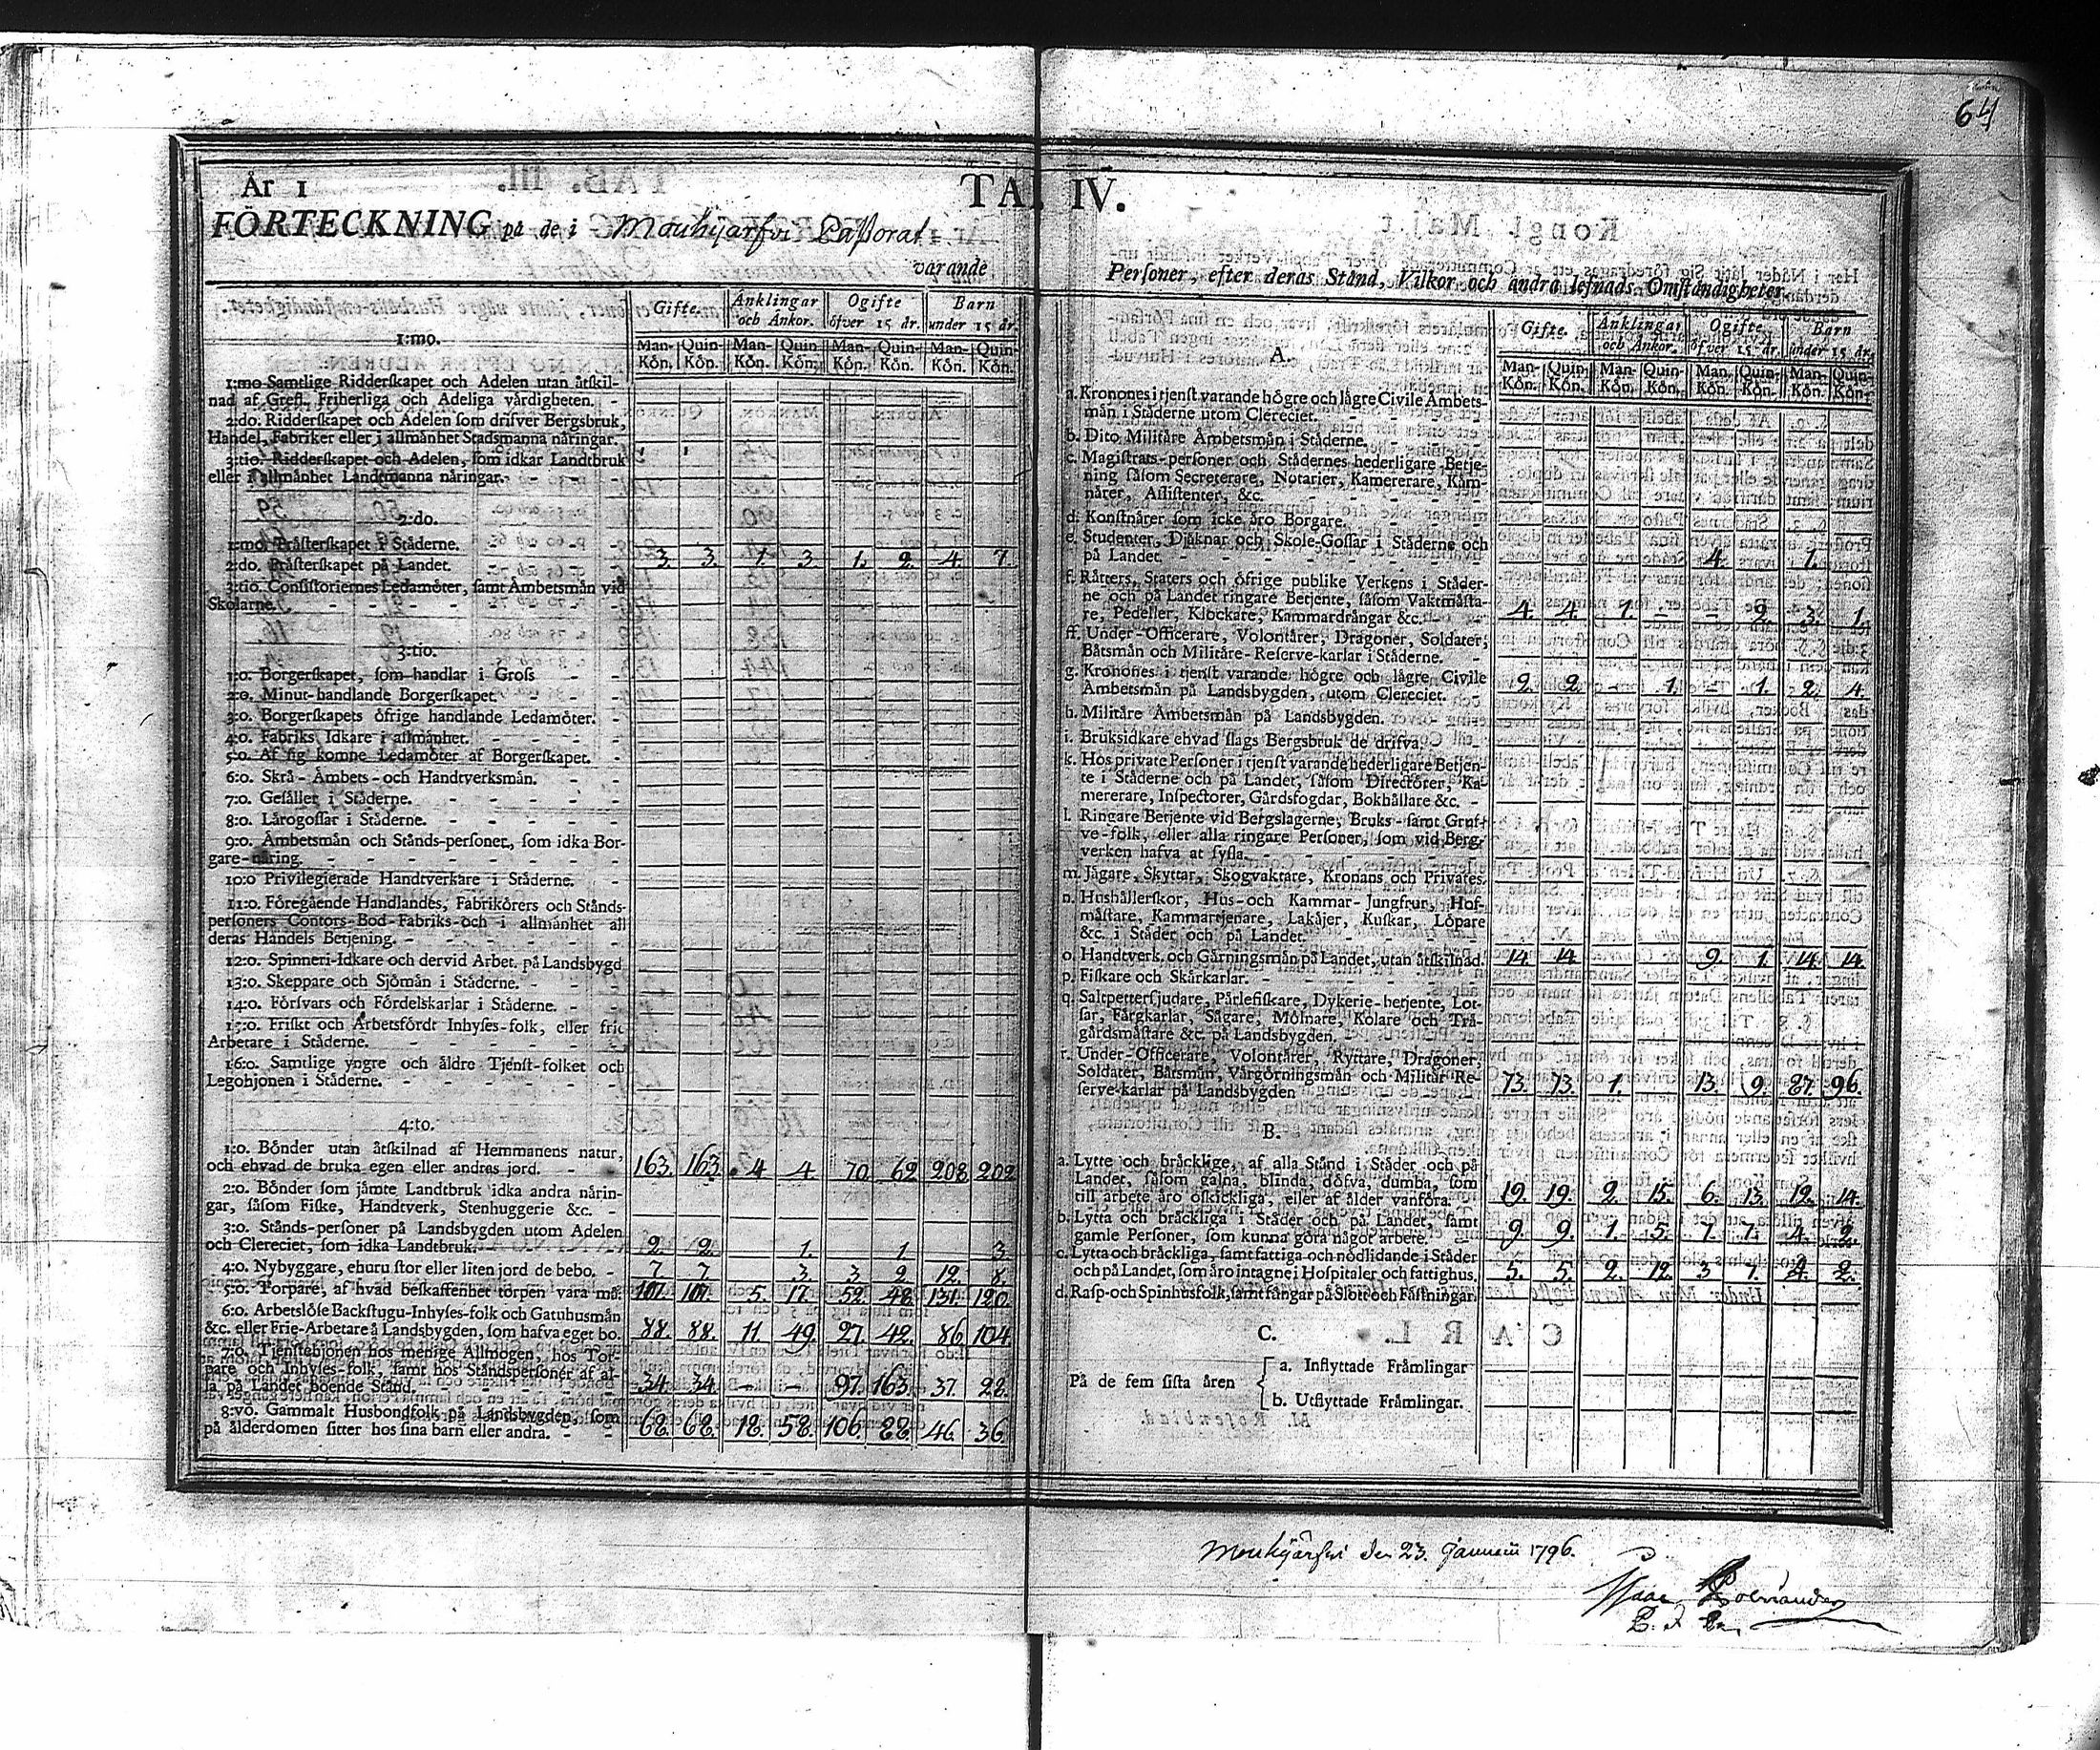 64
År 1
TA. IV.
FÖRTECKNING på de i Mouhijärfvi Pastorat
varande
Personer, efter deras Stånd, Vilkor och andra lefnads Omständigheter.
Gifte. Änklingar och Änkor. Ogifte öfver 15 år. Barn under 15 år.
Man-Kön. Quin-Kön. Man-Kön. Quin-Kön. Man-Kön. Quin-Kön. Man-Kön. Quin-Kön.
1:mo.
1:mo Samtlige Ridderskapet och Adelen utan åtskil-
nad af Grefl. Friherliga och Adeliga värdigheten. -
2:do. Ridderskapet och Adelen som drifver Bergsbruk,
Handel, Fabriker eller i allmänhet Stadsmanna näringar.
3:tio. Ridderskapet och Adelen, som idkar Landtbruk
eller i allmänhet Landtmanna näringar.
2:do.
1:mo. Prästerskapet i Städerne.
2:do. Prästerskapet på Landet. 3. 3. 1. 3. 1. 2. 4. 7.
3:tio. Consistoriernes Ledamöter, samt Ämbetsmän vid
Skolarne.
3:tio.
1:o. Borgerskapet, som handlar i Gross
2:o. Minut-handlande Borgerskapet.
3:o. Borgerskapets öfrige handlande Ledamöter.
4:o. Fabriks Idkare i allmänhet.
5:o. Af sig komne Ledamöter af Borgerskapet.
6:o. Skrå-Ämbets-och Handtverksmän.
7:o. Gesäller i Städerne.
8:o. Lärogossar i Städerne.
9:o. Ämbetsmän och Stånds-personer, som idka Bor-
gare-näring.
10:o Privilegierade Handtverkare i Städerne.
11:o. Föregående Handlandes, Fabrikörers och Stånds-
personers Contors-Bod-Fabriks-och i allmänhet all
deras Handels Betjening.
12:o. Spinneri-Idkare och dervid Arbet. på Landsbygd
13:o. Skeppare och Sjömän i Städerne.
14:o. Försvars och Fördelskarlar i Städerne.
15:o. Friskt och Arbetsfördt Inhyses-folk, eller frie
Arbetare i Städerne.
16:o. Samtlige yngre och äldre Tjenst-folket och
Legohjonen i Städerne.
4:to.
1:o. Bönder utan åtskilnad af Hemmanens natur,
och ehvad de bruka egen eller andras jord. 163. 163. 4 4. 70. 62 208 202
2:o. Bönder som jämte Landtbruk idka andra närin-
gar, såsom Fiske, Handtverk, Stenhuggerie &c.
3:o. Stånds-personer på Landsbygden utom Adelen
och Clereciet, som idka Landtbruk. 2. 2. 1. 1. 3.
4:o. Nybyggare, ehuru stor eller liten jord de bebo. 7 7 3. 3 2 12. 8.
5:o. Torpare, af hvad beskaffenhet torpen vara må. 107. 107. 5. 17. 52. 48. 131. 120.
6:o. Arbetslöse Backstugu-Inhyses-folk och Gatuhusmän
&c. eller Frie-Arbetare å Landsbygden, som hafva eget bo. 88. 88. 11. 49. 27. 42. 86 104
7:o. Tjenstehjonen hos menige Allmogen, hos Tor-
pare och Inhyses-folk, samt hos Ståndspersoner af al-
la på Landet boende Stånd. 34. 34. - - 97. 163. 37. 22.
8:vo. Gammalt Husbondfolk på Landsbygden, som
på ålderdomen sitter hos sina barn eller andra. 68. 68. 18. 58. 106. 88. 46. 36.
Gifte. Änklingar och Änkor. Ogifte öfver 15 år. Barn under 15 år.
Man-Kön. Quin-Kön. Man-Kön. Quin-Kön. Man-Kön. Quin-Kön. Man-Kön. Quin-Kön.
A.
a. Kronones i tjenst varande högre och lägre Civile Ämbets-
män i Städerne utom Clereciet.
b. Dito Militäre Ämbetsmän i Städerne.
c. Magistrats-personer och Städernes hederligare Betje-
ning såsom Secreterare, Notarier, Kamererare, Käm-
närer, Assistenter, &c.
d. Konstnärer som icke äro Borgare.
e. Studenter, Djäknar och Skole-Gossar i Städerne och
på Landet. 4. 1.
f. Rätters, Staters och öfrige publike Verkens i Städer-
ne och på Landet ringare Betjente, såsom Vaktmästa-
re, Pedeller, Klockare, Kammardrängar &c. 4. 4. 1. - - 2. 3. 1.
ff. Under-Officerare, Volontärer, Dragoner, Soldater,
Båtsmän och Militäre-Reserve-karlar i Städerne.
g. Kronones i tjenst varande högre och lägre Civile
Ämbetsmän på Landsbygden, utom Clereciet. 2. 2. - 1. - 1. 2. 4.
h. Militäre Ämbetsmän på Landsbygden.
i. Bruksidkare ehvad slags Bergsbruk de drifva.
k. Hos private Personer i tjenst varande hederligare Betjen-
te i Städerne och på Landet, såsom Directörer, Ka-
mererare, Inspectorer, Gårdsfogdar, Bokhållare &c.
l. Ringare Betjente vid Bergslagerne, Bruks-samt Gruf-
ve-folk, eller alla ringare Personer, som vid Berg-
verken hafva at syssla.
m. Jägare, Skyttar, Skogvaktare, Kronans och Privates.
n. Hushållerskor, Hus-och Kammar-Jungfrur, Hof-
mästare, Kammartjenare, Lakäjer, Kuskar, Löpare
&c. i Städer och på Landet.
o. Handtverk. och Gärningsmän på Landet, utan åtskilnad. 14. 14. 9. 1. 14. 14.
p. Fiskare och Skärkarlar.
q. Saltpettersjudare, Pärlefiskare, Dykerie-betjente, Lot-
sar, Färgkarlar, Sågare, Mölnare, Kolare och Trä-
gårdsmästare &c. på Landsbygden.
r. Under-Officerare, Volontärer, Ryttare, Dragoner,
Soldater, Båtsmän, Vargörningsmän och Militär Re-
serve-karlar på Landsbygden 73. 73. 1. 13. 9. 87. 96.
B.
a. Lytte och bräcklige, af alla Stånd i Städer och på
Landet, såsom galna, blinda, döfva, dumba, som
till arbete äro oskickliga, eller af ålder vanföra. 19. 19. 2. 15. 6. 13. 12. 14.
b. Lytta och bräckliga i Städer och på Landet, samt
gamle Personer, som kunna göra något arbete. 9. 9. 1. 5. 7. 7. 4. 2.
c. Lytta och bräckliga, samt fattiga och nödlidande i Städer
och på Landet, som äro intagne i Hospitaler och fattighus. 5. 5. 2. 12. 3 1. 2. 2.
d. Rasp-och Spinhusfolk, samt fångar på Slott och Fästningar.
C.
På de fem sista åren
a. Inflyttade Främlingar
b. Utflyttade Främlingar.
Mouhijärfvi den 23. Januarii 1796.